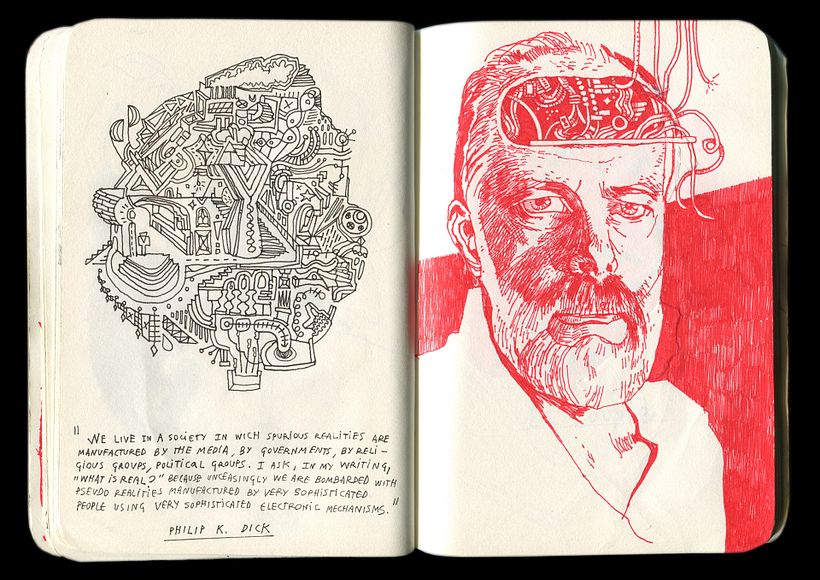 "WE LIVE IN A SOCIETY IN WICH SPURIOUS REALITIES ARE
MANUFACTURED BY THE MEDIA, BY GOVERNMENTS, BY RELI-
GIOUS GROUPS, POLITICAL GROUPS. I ASK, IN MY WRITING,
"WHAT IS REAL?" BECAUSE UNCEASINGLY WE ARE BOMBARDED WITH
PSEUDO REALITIES MANUFACTURED BY VERY SOPHISTICATED
PEOPLE USING VERY SOPHISTICATED ELECTRONIC MECHANISMS."
PHILIP K. DICK